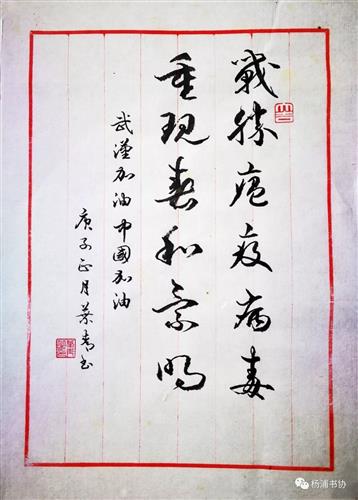 戰勝瘟疫病毒
重现春和景明
武漢加油中國加油
庚子正月葉青书
杨浦书协